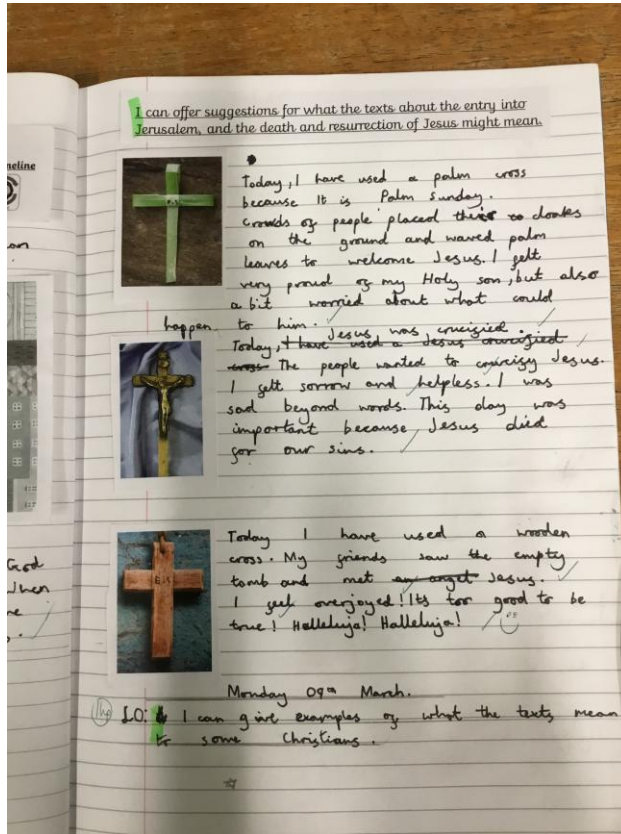 I can offer suggestions for what the texts about the entry into
Jerusalem, and the death and resurrection of Jesus might mean.
Today, I have used a palm cross
because It is Palm Sunday.
Crowds of people placed their cloaks
on the ground and waved palm
leaves to welcome Jesus. I felt
very proud of my Holy son, but also
a bit worried about what could
happen to him.
Jesus was crucified.
Today, I have used a Jesus crucified
cross The people wanted to crucify Jesus.
I felt sorrow and helpless. I was
sad beyond words. This day was
important because Jesus died
for our sins.
Today I have used a wooden
cross. My friends saw the empty
tomb and met an angel Jesus.
I feel overjoyed! Its too good to be
true! Halleluja! Halleluja!
Monday 09th March.
LO: I can give examples of what the texts mean
to some Christians.
meline
God
When